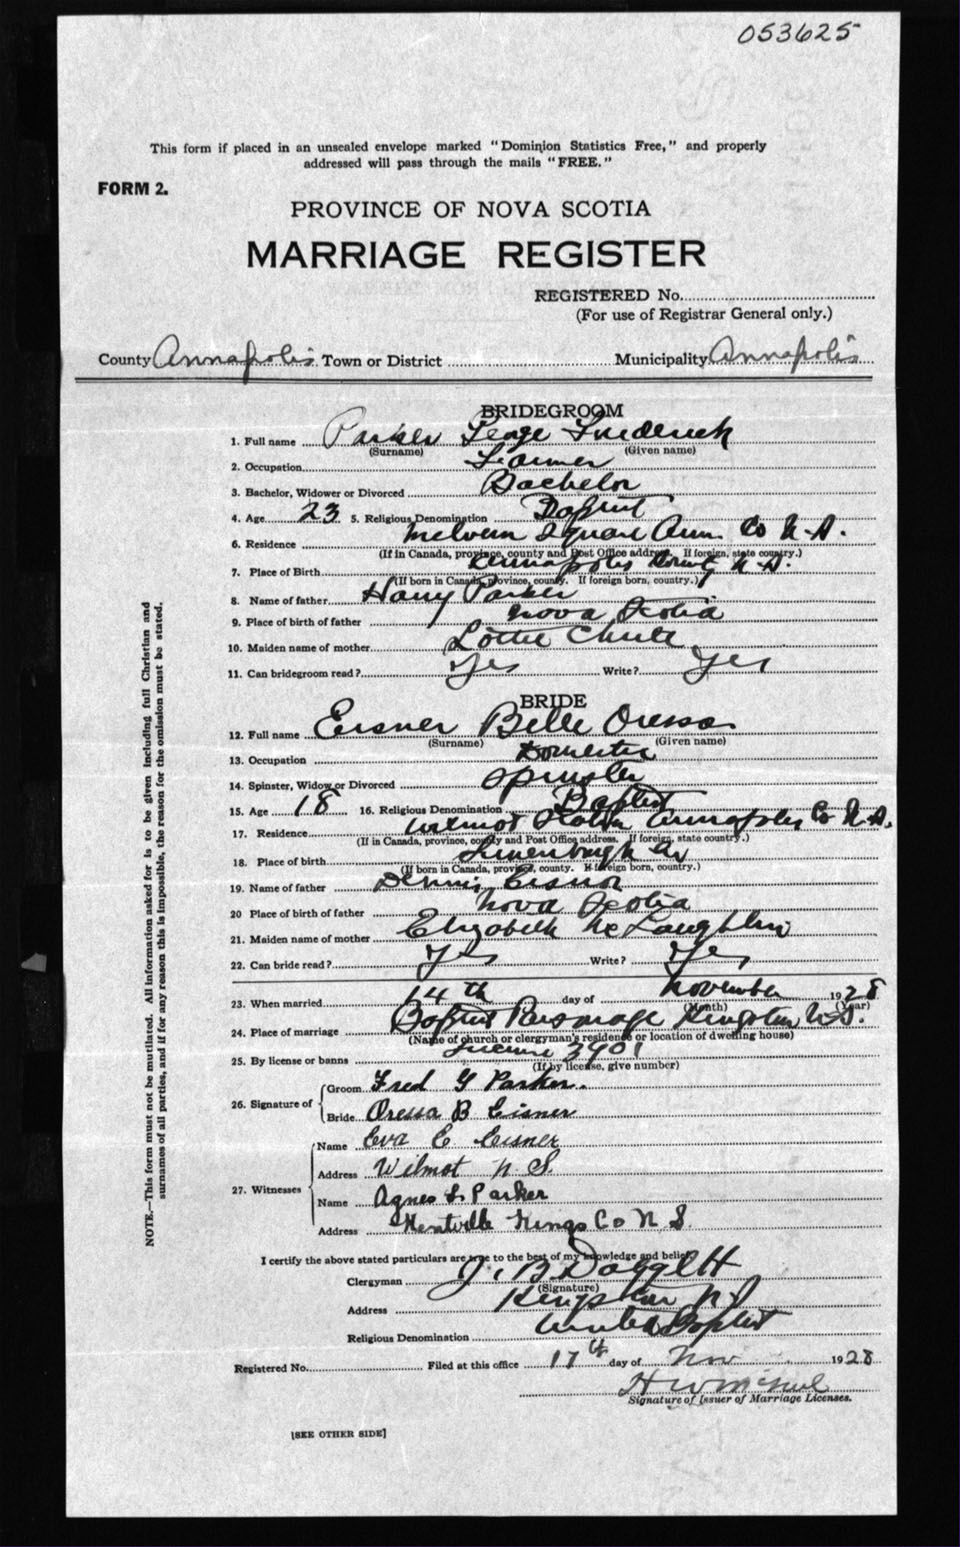 053625
This form if placed in an unsealed envelope marked "Dominion Statistics Free," and properly
addressed will pass through the mails "FREE."
FORM 2.
PROVINCE OF NOVA SCOTIA
MARRIAGE REGISTER
REGISTERED No.
(For use of Registrar General only.)
County Annapolis Town or District Municipality Annapolis
BRIDEGROOM
1. Full name Parker George Frederick
(Surname) (Given name)
2. Occupation Farmer
3. Bachelor, Widower or Divorced Bachelor
4. Age 23 5. Religious Denomination Baptist
6. Residence Melvern Square Ann. Co N.S.
(If in Canada, province, county and Post Office address. If foreign, state country.)
7. Place of Birth Annapolis County N.S.
(If born in Canada, province, county. If foreign born, country.)
8. Name of father Harry Parker
9. Place of birth of father Nova Scotia
10. Maiden name of mother Lottie Chute
11. Can bridegroom read? Yes Write? Yes
BRIDE
12. Full name Eisner Belle Oressa
(Surname) (Given name)
13. Occupation Domestic
14. Spinster, Widow or Divorced Spinster
15. Age 18 16. Religious Denomination Baptist
17. Residence Wilmot Station Annapolis Co N.S.
(If in Canada, province, county and Post Office address. If foreign, state country.)
18. Place of birth Lunenburg Co
(If born in Canada, province, county. If foreign born, country.)
19. Name of father Dennis Eisnor
20 Place of birth of father Nova Scotia
21. Maiden name of mother Elizabeth McLaughlin
22. Can bride read? Yes Write? Yes
23. When married 14th day of November 1928
(Month) (Year)
24. Place of marriage Baptist Parsonage Kingston N.S.
(Name of church or clergyman's residence or location of dwelling house)
25. By license or banns License 3901
(If by license, give number)
26. Signature of Groom Fred G Parker.
Bride Oressa B Eisner
27. Witnesses Name Eva E Eisner
Address Wilmot N S.
Name Agnes L. Parker
Address Kentville Kings Co N S.
I certify the above stated particulars are true to the best of my knowledge and belief.
Clergyman J. B Daggett
(Signature)
Address Kingston N S
Religious Denomination United Baptist
Registered No. Filed at this office 17th day of Nov 1928
H W
Signature of Issuer of Marriage Licenses.
[SEE OTHER SIDE]
NOTE.—This form must not be mutilated. All information asked for is to be given including full Christian and
surnames of all parties, and if for any reason this is impossible, the reason for the omission must be stated.